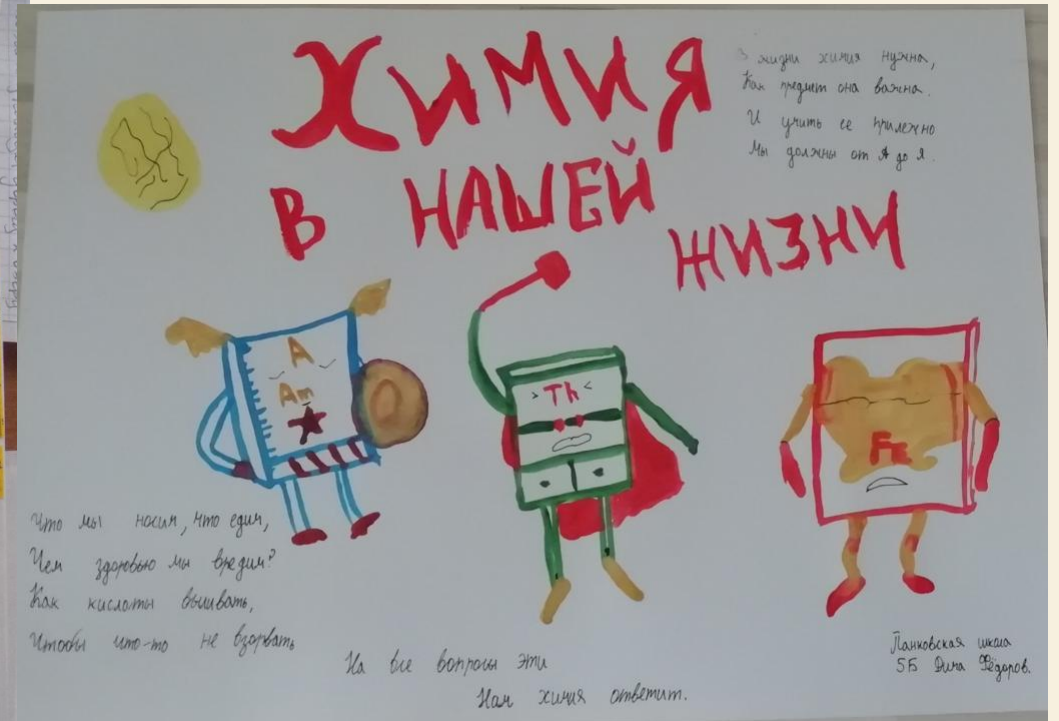 ХИМИЯ
В НАШЕЙ
ЖИЗНИ
В жизни химия нужна,
Как предмет она важна.
И учить ее прилежно
Мы должны от А до Я.
А
Am
Th
Fe
Что мы носим, что едим,
Чем здоровью мы вредим?
Как кислоты выливать,
Чтобы что-то не взорвать
На все вопросы эти
Нам химия ответит.
Панковская школа
5Б Дима Фёдоров.